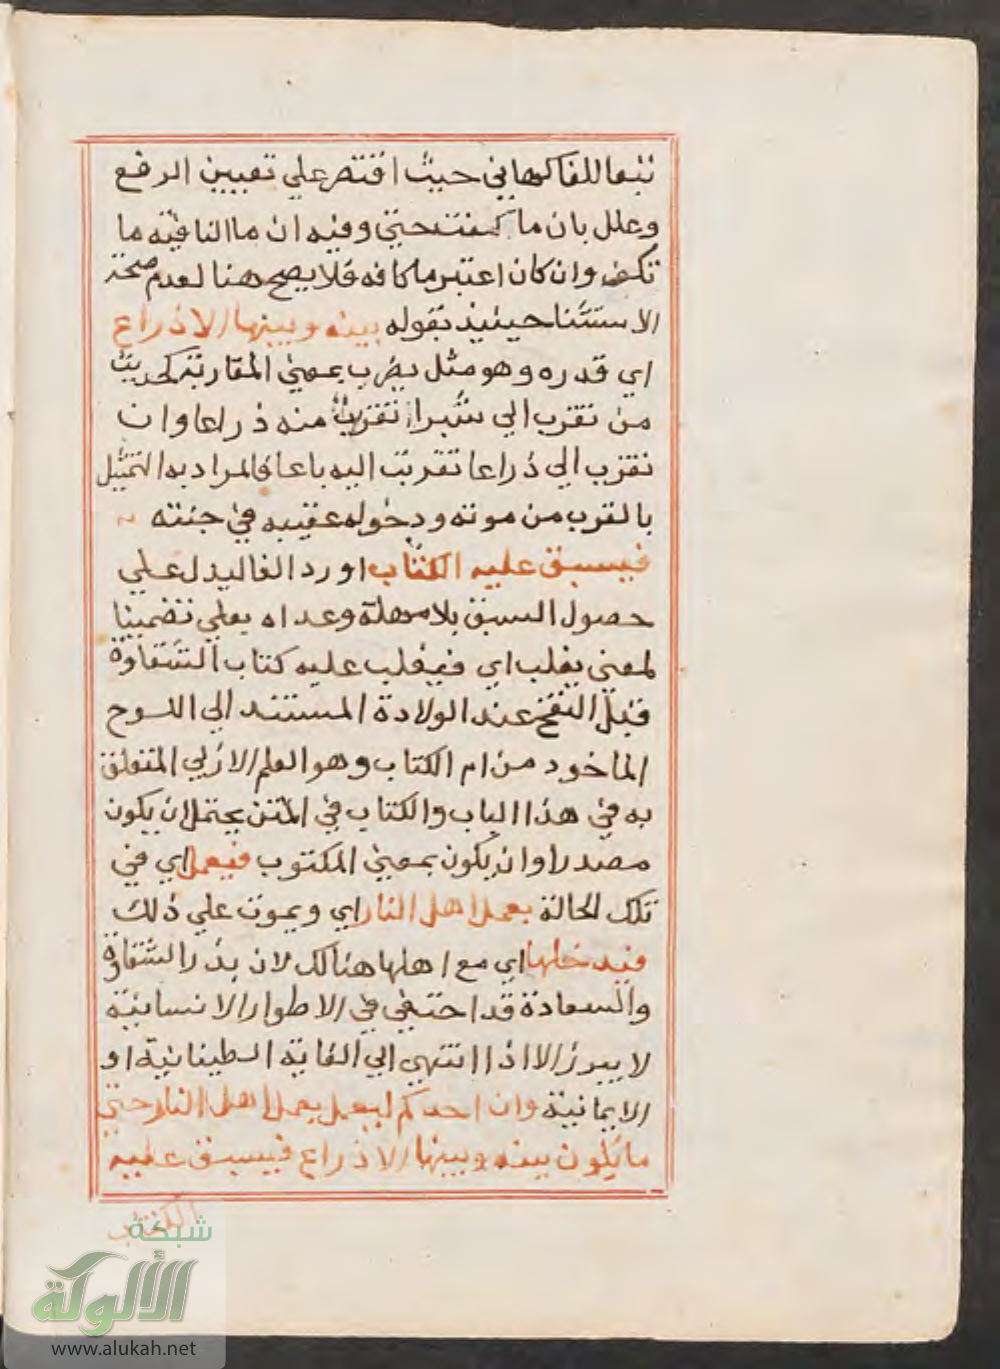 تبعا للفاكهاني حيث اقتصر علي تعيين الرفع
وعلل بان ما كفت حتي وفيه ان ما النافية ما
تكف وان كان اعتبر ما كافه فلا يصح هنا لعدم صحة
الاستثنا حينيذ بقوله بينه وبينها الا ذراع
اي قدره وهو مثل يضرب بمعني المقاربة كحديث
من تقرب الي شبرا تقربت منه ذراعا وان
تقرب الي ذراعا تقربت اليه باعا فالمراد به التمثيل
بالقرب من موته ودخوله عقيبه في جنته
فيسبق عليه الكتاب اورد الفا ليدل علي
حصول السبق بلا مهلة وعداه بعلي تضمينا
لمعني يغلب اي فيغلب عليه كتاب الشقاوة
قبل النفخ عند الولادة المستند الي اللوح
الماخود من ام الكتاب وهو العلم الازلي المتعلق
به في هذا الباب والكتاب في المتن يحتمل ان يكون
مصدرا وان يكون بمعني المكتوب فيعمل اي في
تلك الحالة بعمل اهل النار اي ويموت علي ذلك
فيدخلها اي مع اهلها هنالك لان بذر الشقاوة
والسعادة قد اختفي في الاطوار الانسانية
لا يبرز الا اذا انتهي الي الغاية الطينانية او
الايمانية وان احدكم ليعمل بعمل اهل النار حتي
ما يكون بينه وبينها الا ذراع فيسبق عليه
الكتاب
شبكة
الألوكة
www.alukah.net